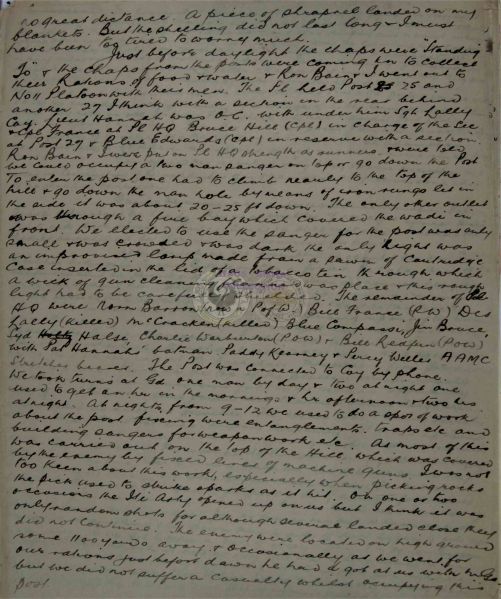 no great distance. A piece of shrapnel landed on my
blankets. But the shelling did not last long & I must
have been too tired to worry much.
Just before daylight the chaps were "Standing
To" & the chaps from the posts were coming in to collect
their Rations of food & water & Ron Bain & I went out to
No 11 Platoon with their men. The Pl. held Post 25 and
another 27 I think with a section in the rear behind
Coy. Lieut Hannah was O.C. with under him Sgt Lally
& Cpl France at Pl HQ Bruce Hill (Cpl) in charge of the sec
at Post 29 & Blue Edwards (Cpl) in reserve with a section
Ron Bain & I were put on Pl HQ strength as runners & were told
we could occupy a two man sangar on top or go down the Post
To enter the post one had to climb nearly to the top of the
hill & go down the man hole by means of iron rungs let in
the side it was about 20-25 ft down. The only other outlet
was through a fire bay which covered the wadi in
front. We elected to use the sangar for the post was only
small & was crowded & was dark the only light was
an improvised lamp made from a
case inserted in the lid of a tobacco tin through which
a wick of gun cleaning was place this rough
light had to be careful The remainder of
HQ were Norm Barron (P of W), Bill France (PW) Des
Lally (killed) McCracken (killed) Blue Compasse, Jim Bruce,
Syd Halse, Charlie Warburton (POW) & Bill Redfern (POW)
with Lt Hannahs' batman Paddy Kearney & Percy Welles AAMC
Stretcher bearer. The Post was connected to Coy by phone.
We took turns at Gd one man by day & two at night one
used to get an hr in the mornings & hr afternoon & two hrs
at night. At nights, from 9-12 we used to do a spot of work
about the post fixing wire entanglements, traps etc and
building sangars for weapon work etc. As most of this
was carried out on the top of the Hill, which was covered
by the enemy by fixed lines of machine guns I was not
too keen about this work, especially when picking rocks
the pick used to strike sparks as it hit. On one or two
occasions the Iti Arty opened up on us but I think it was
only random shots for although several landed close they
did not continue. The enemy were located on high ground
some 1100 yards away & occasionally as we went for
our rations just before dawn he had a got at us with M Gs
but we did not suffer a casualty whilst occupying this
post.